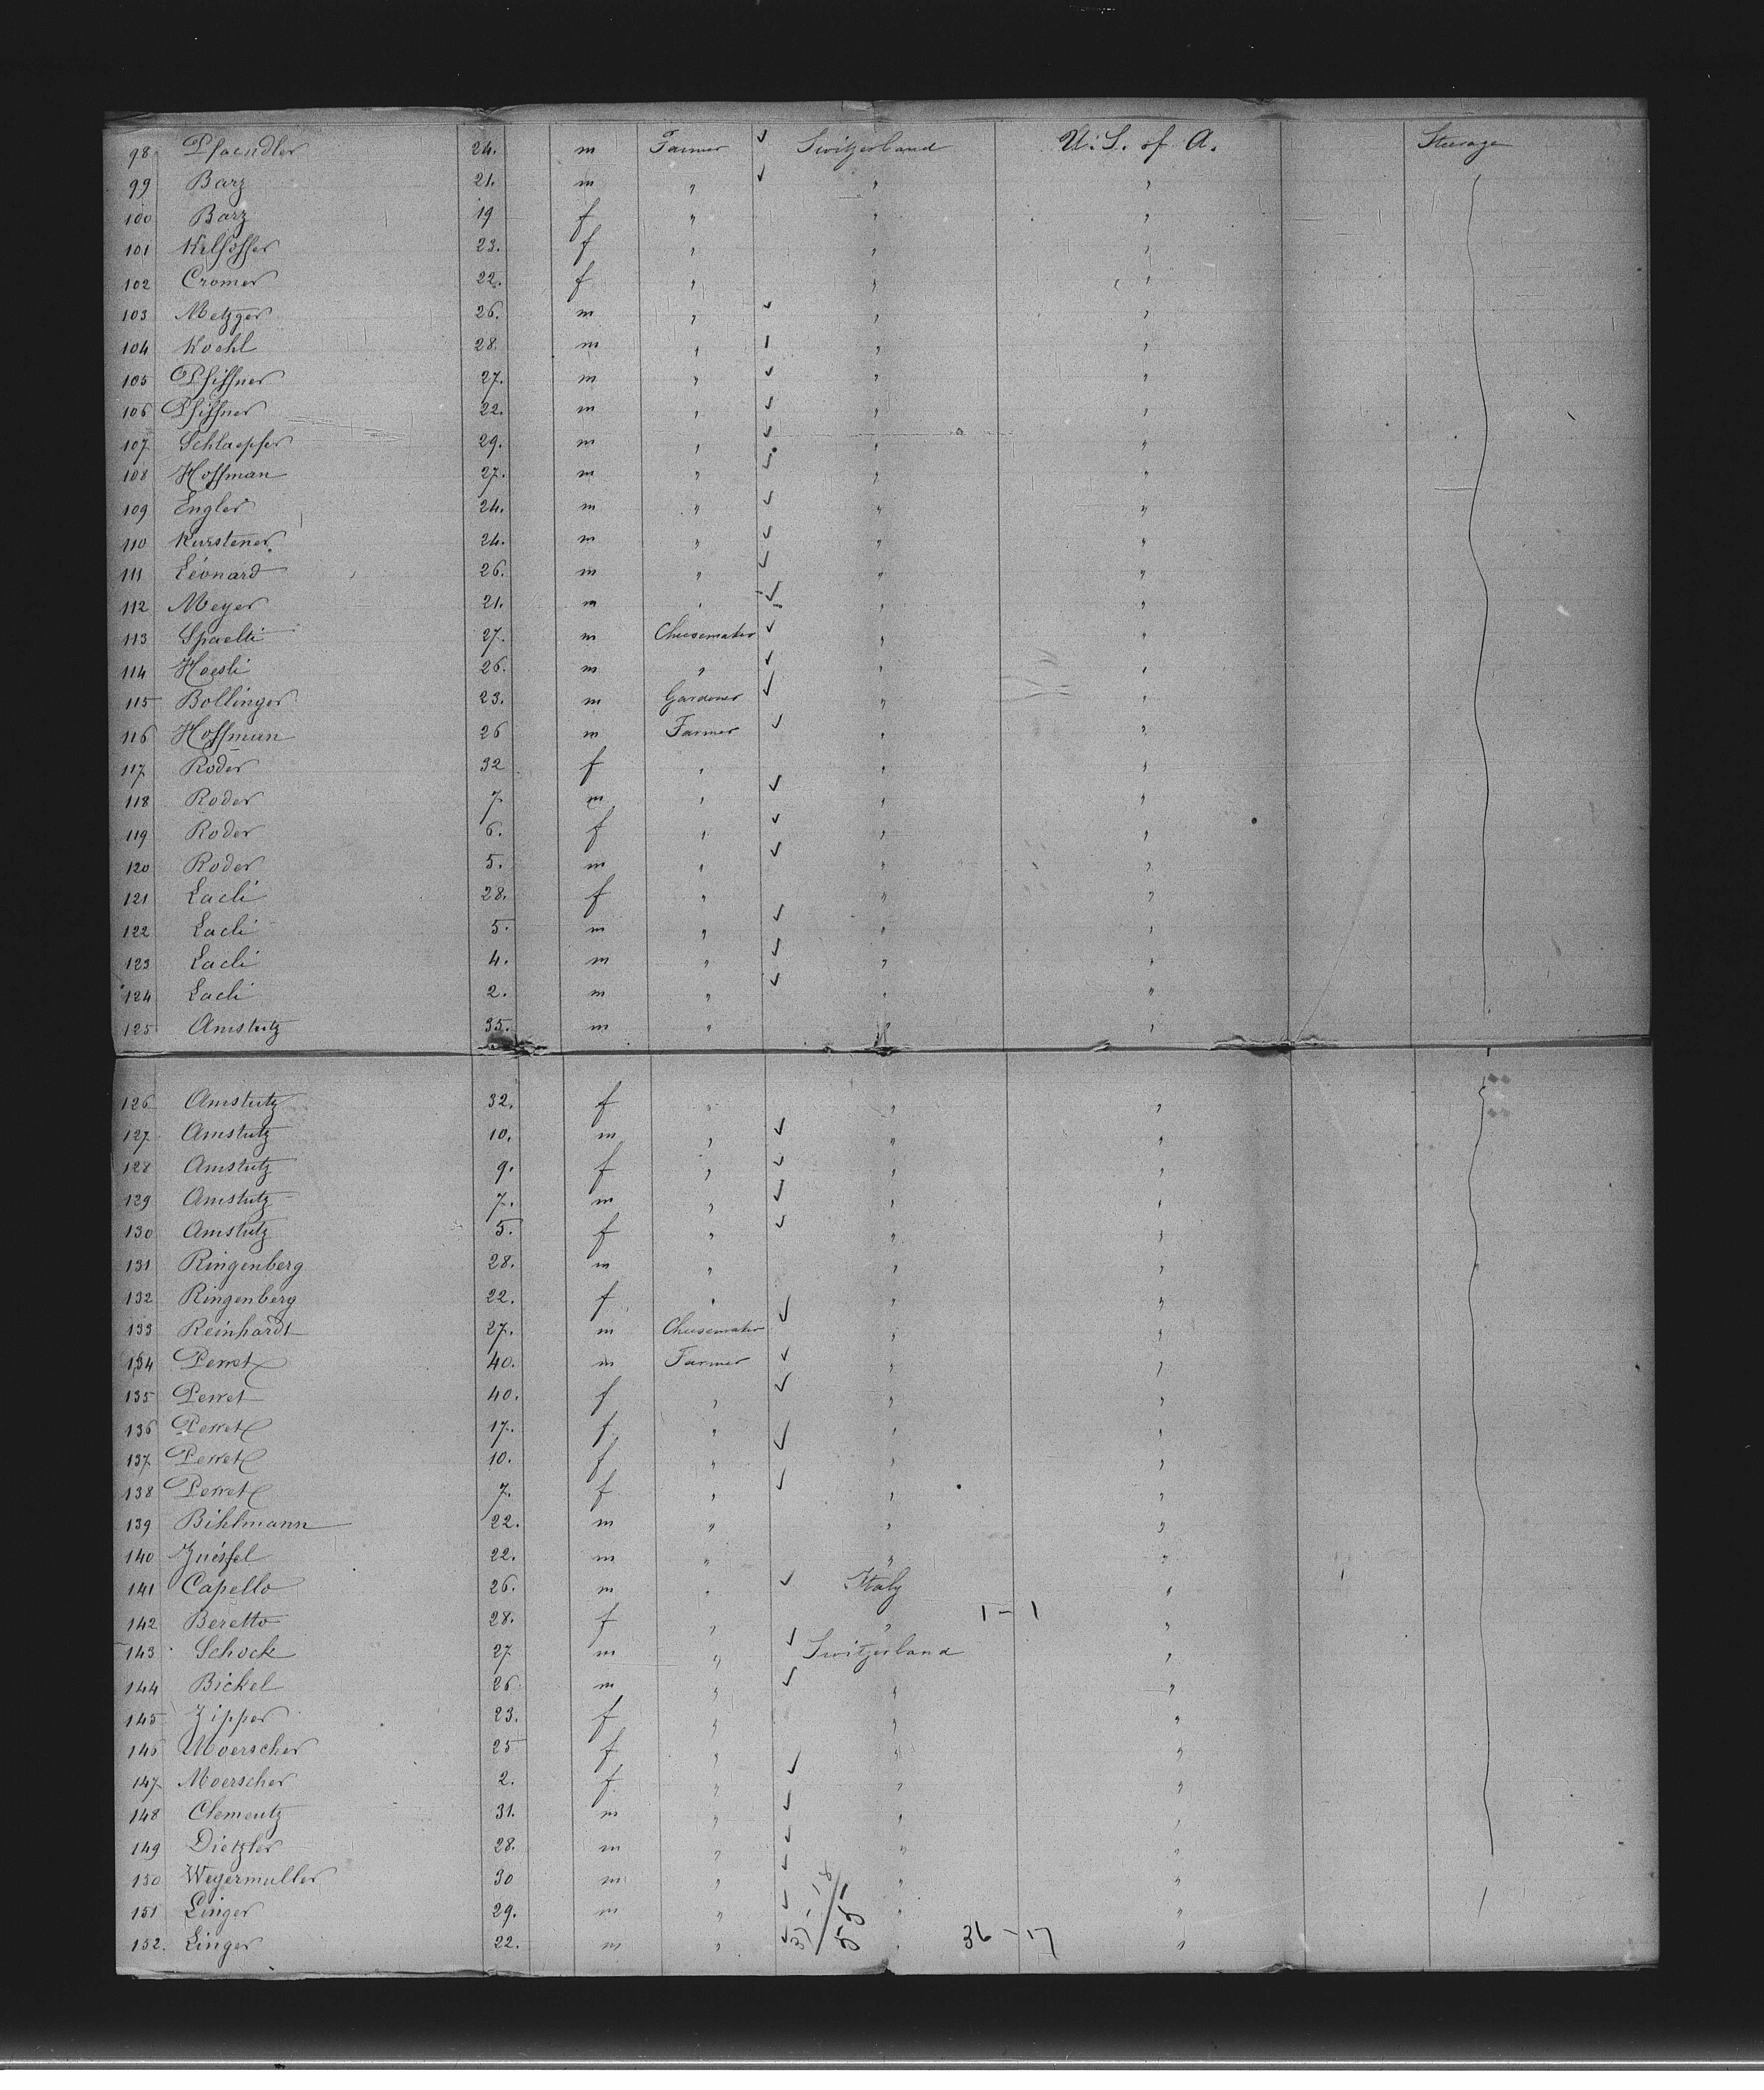 98 Pfaendler 24. m Farmer ✓ Switzerland U. S. of A. Steerage
99 Barz 21. m " ✓ " "
100 Barz 19 f " " "
101 23. f " " "
102 Cromer 22. f " " "
103 Metzger 26. m " ✓ " "
104 Koehl 28. m " " "
105 Pfiffner 27. m " ✓ " "
106 Pfiffner 22. m " ✓ " "
107 Schlaepfer 29. m " ✓ " "
108 Hoffman 27. m " ✓ " "
109 Engler 24. m " ✓ " "
110 Kurstener 24. m " ✓ " "
111 Léonard 26. m " ✓ " "
112 Meyer 21. m " ✓ " "
113 Spaelti 27. m Cheesemaker ✓ " "
114 Hoesli 26. m " ✓ " "
115 Bollinger 23. m Gardener ✓ " "
116 Hoffmann 26 m Farmer ✓ " "
117 Roder 32 f " " "
118 Roder 7. m " ✓ " "
119 Roder 6. f " ✓ " "
120 Roder 5. m " ✓ " "
121 Lacli 28. f " " "
122 Lacli 5. m " ✓ " "
123 Lacli 4. m " ✓ " "
124 Lacli 2. m " ✓ " "
125 Amstutz 35. m " " "
126 Amstutz 32. f " " "
127 Amstutz 10. m " ✓ " "
128 Amstutz 9. f " ✓ " "
129 Amstutz 7. m " ✓ " "
130 Amstutz 5. f " ✓ " "
131 Ringenberg 28. m " " "
132 Ringenberg 22. f " " "
133 Reinhardt 27. m Cheesemaker ✓ " "
134 Perret 40. m Farmer ✓ " "
135 Perret 40. f " ✓ " "
136 Perret 17. f " " "
137 Perret 10. f " ✓ " "
138 Perret 7. f " ✓ " "
139 Bihlmann 22. m " " "
140 22. m " " "
141 Capello 26. m " ✓ Italy "
142 Beretto 28. f " " 1 - 1 "
143 Schock 27 m " ✓ Switzerland "
144 Bickel 26 m " ✓ " "
145 Zipper 23. f " " "
146 Moerscher 25 f " " "
147 Moerscher 2. f " ✓ " "
148 Clementz 31. m " ✓ " "
149 Dietzler 28. m " ✓ " "
150 Wegermuller 30 m " ✓ " "
151 Linger 29. m " ✓ " "
152. Linger 22. m " ✓ " 36 - 17 "
37 - 18 / 55